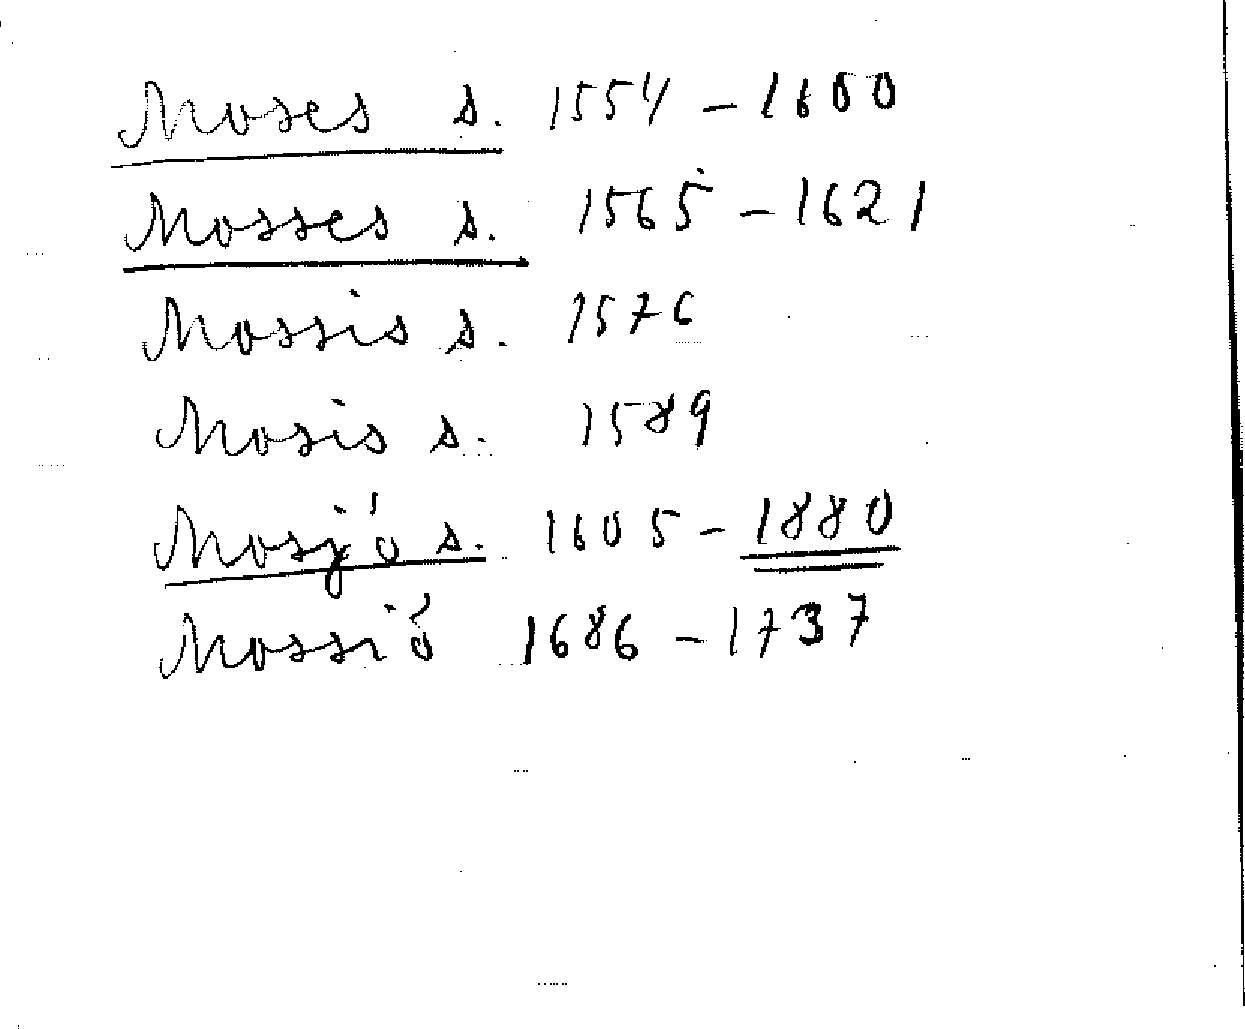 Moses s. 1554 - 1600
Mosses s. 1565 - 1621
Mossis s. 1576
Mosis s. 1589
Mosjö s. 1605 - 1880
Mossiö 1686 - 1737